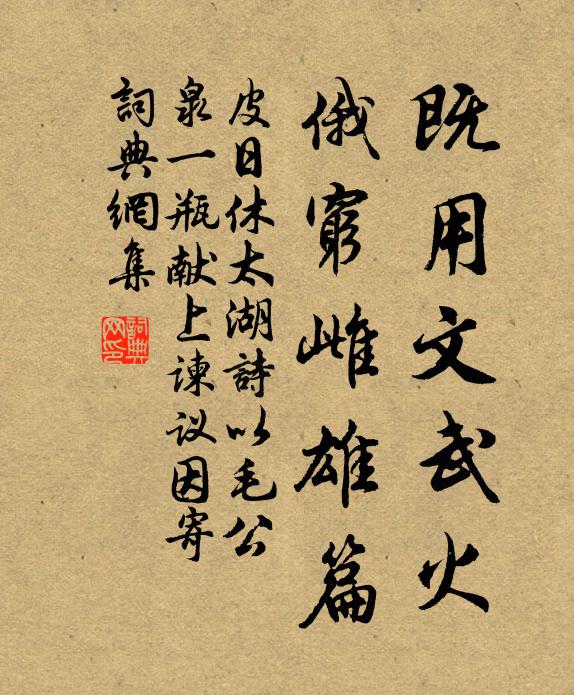 既用文武火
俄窮雌雄篇
皮日休太湖詩以毛公
泉一瓶献上谏议因寄
詞典網集
詞典
网印